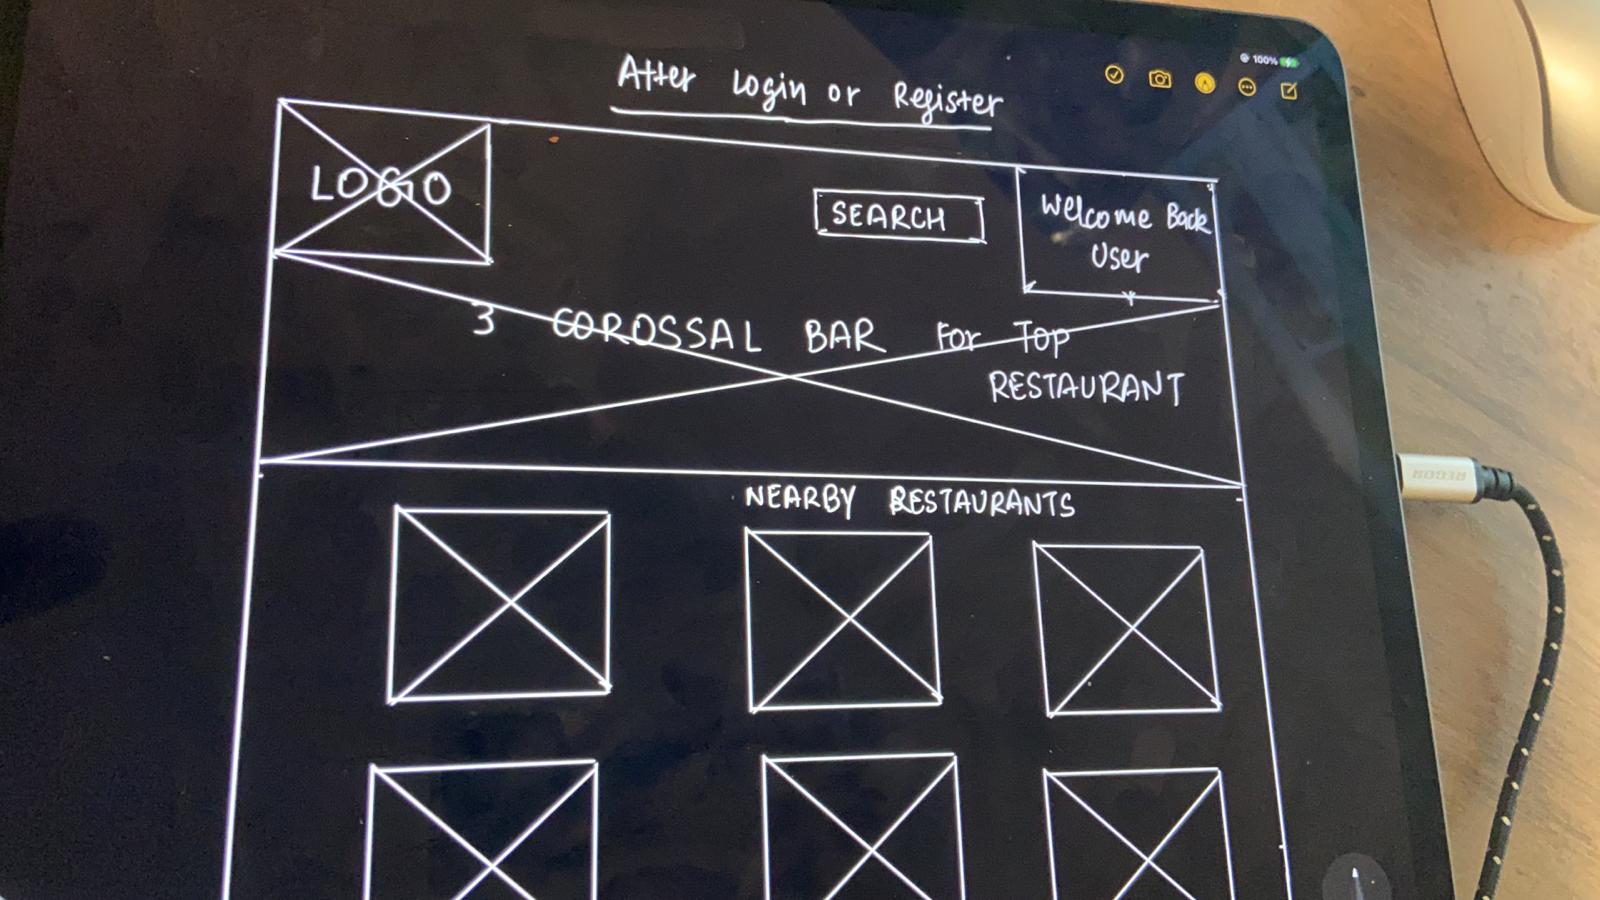 100%
After Login or Register
LOGO
SEARCH
Welcome Back
User
3 COROSSAL BAR For Top
RESTAURANT
NEARBY RESTAURANTS